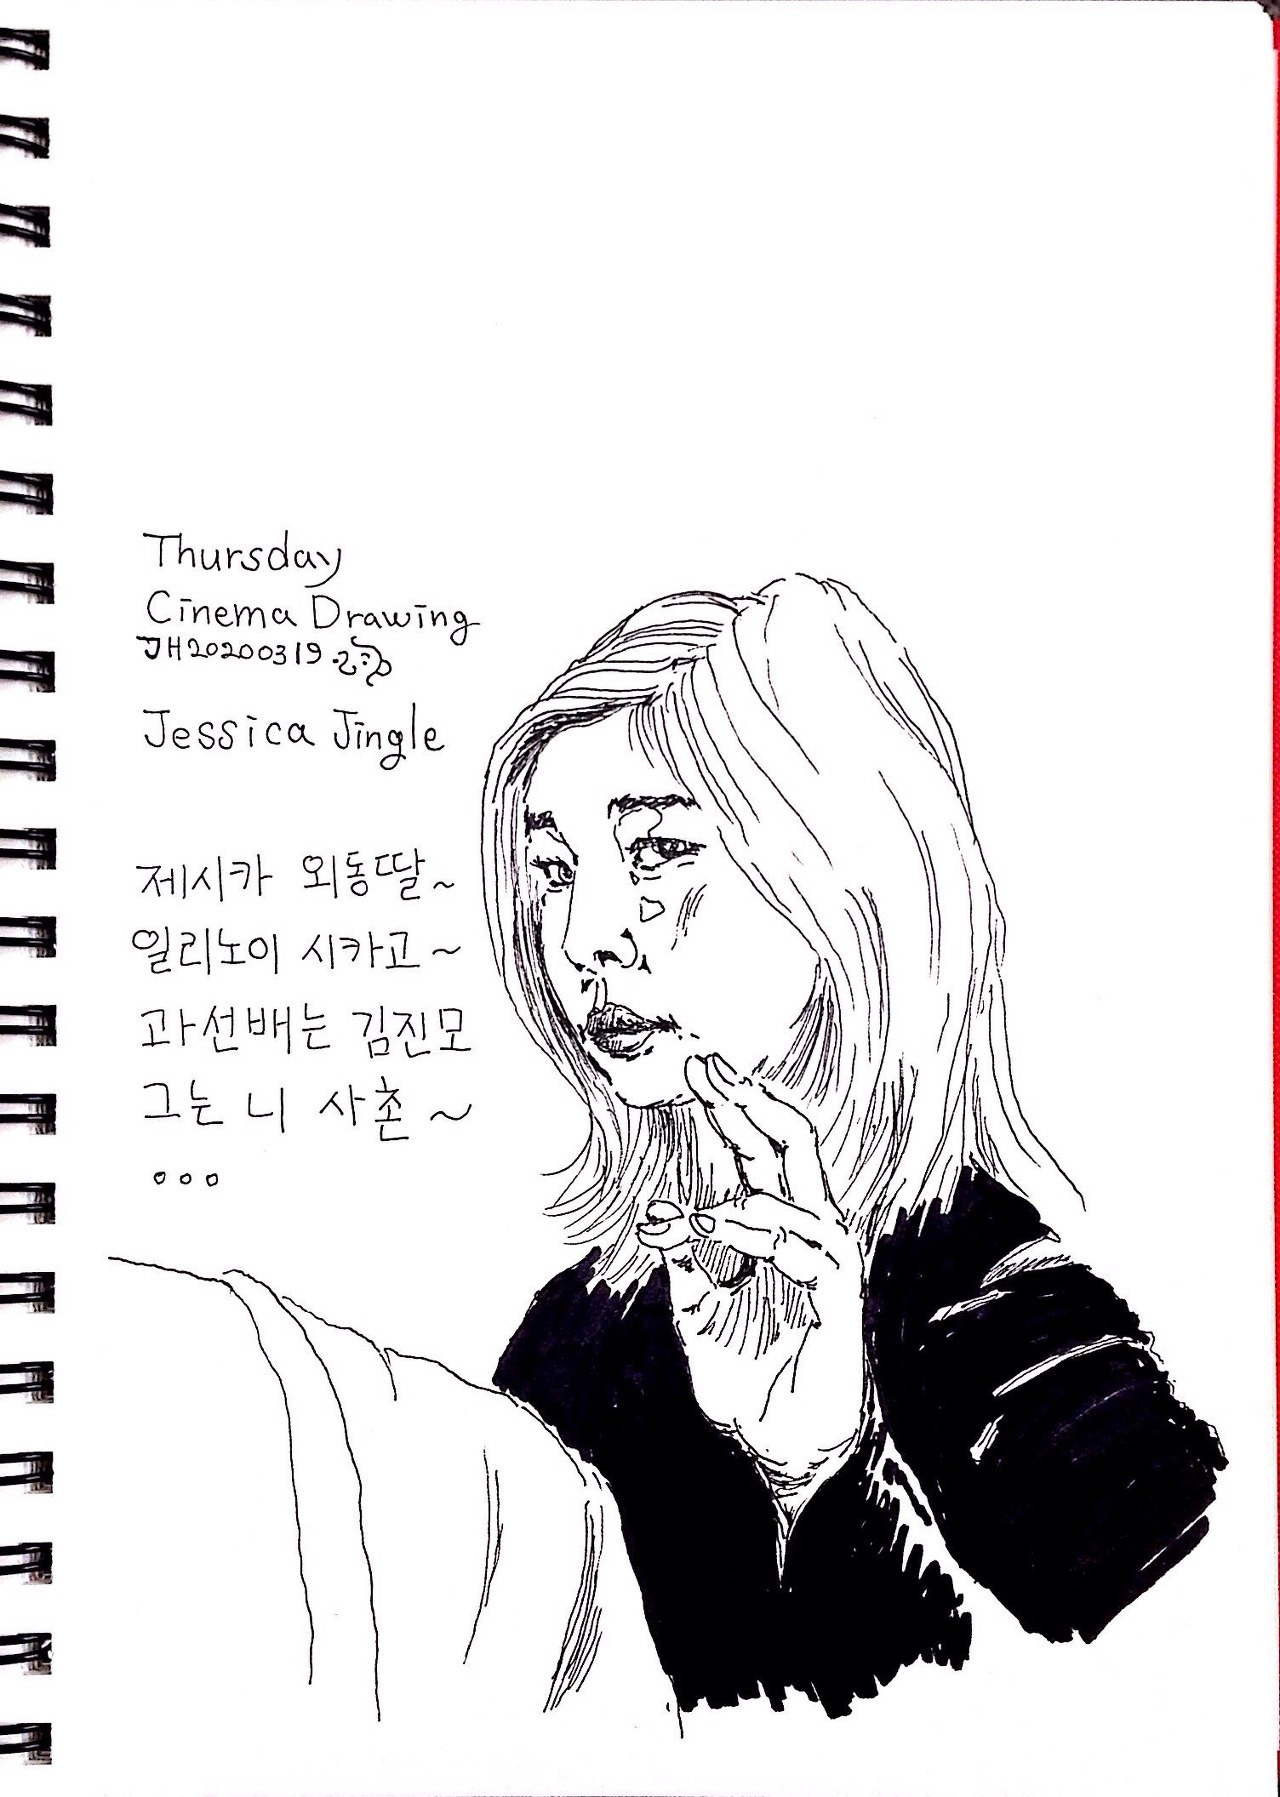 Thursday
Cinema Drawing
JH20200319
Jessica Jingle
제시카 외동딸~
일리노이 시카고~
과선배는 김진모
그는 니 사촌~
...